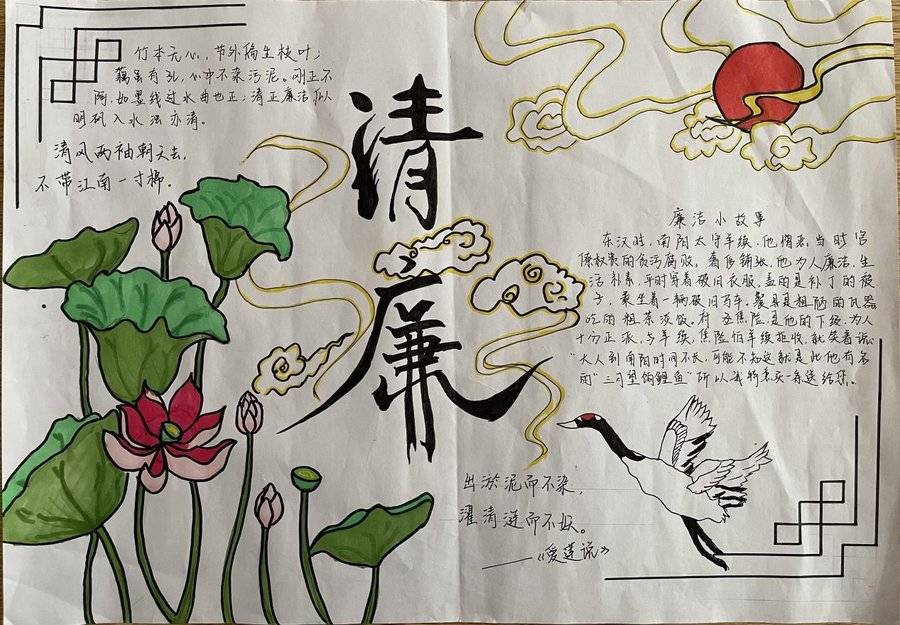 竹本无心，节外偏生枝叶；
藕虽有孔，心中不染污泥。刚正不
阿，如墨线过水曲也正；清正廉洁似
明矾入水浊亦清。
清风两袖朝天去，
不带江南一寸棉。
清
廉
廉洁小故事
东汉时，南阳太守羊续，他憎恶当时官
僚权豪的贪污腐败，奢侈铺张，他为人廉洁，生
活朴素，平时穿着破旧衣服，盖的是补丁的被
子，乘坐着一辆破旧马车。餐具是粗陋的瓦器
吃的粗茶淡饭。府丞焦俭，是他的下级，为人
十分正派，与羊续，焦俭怕羊续拒收，就笑着说：
“大人到南阳时间不长，可能不知这就是此地有名
的“三月望饷鲤鱼”所以我特意买一条送给您。
出淤泥而不染，
濯清涟而不妖。
——《爱莲说》